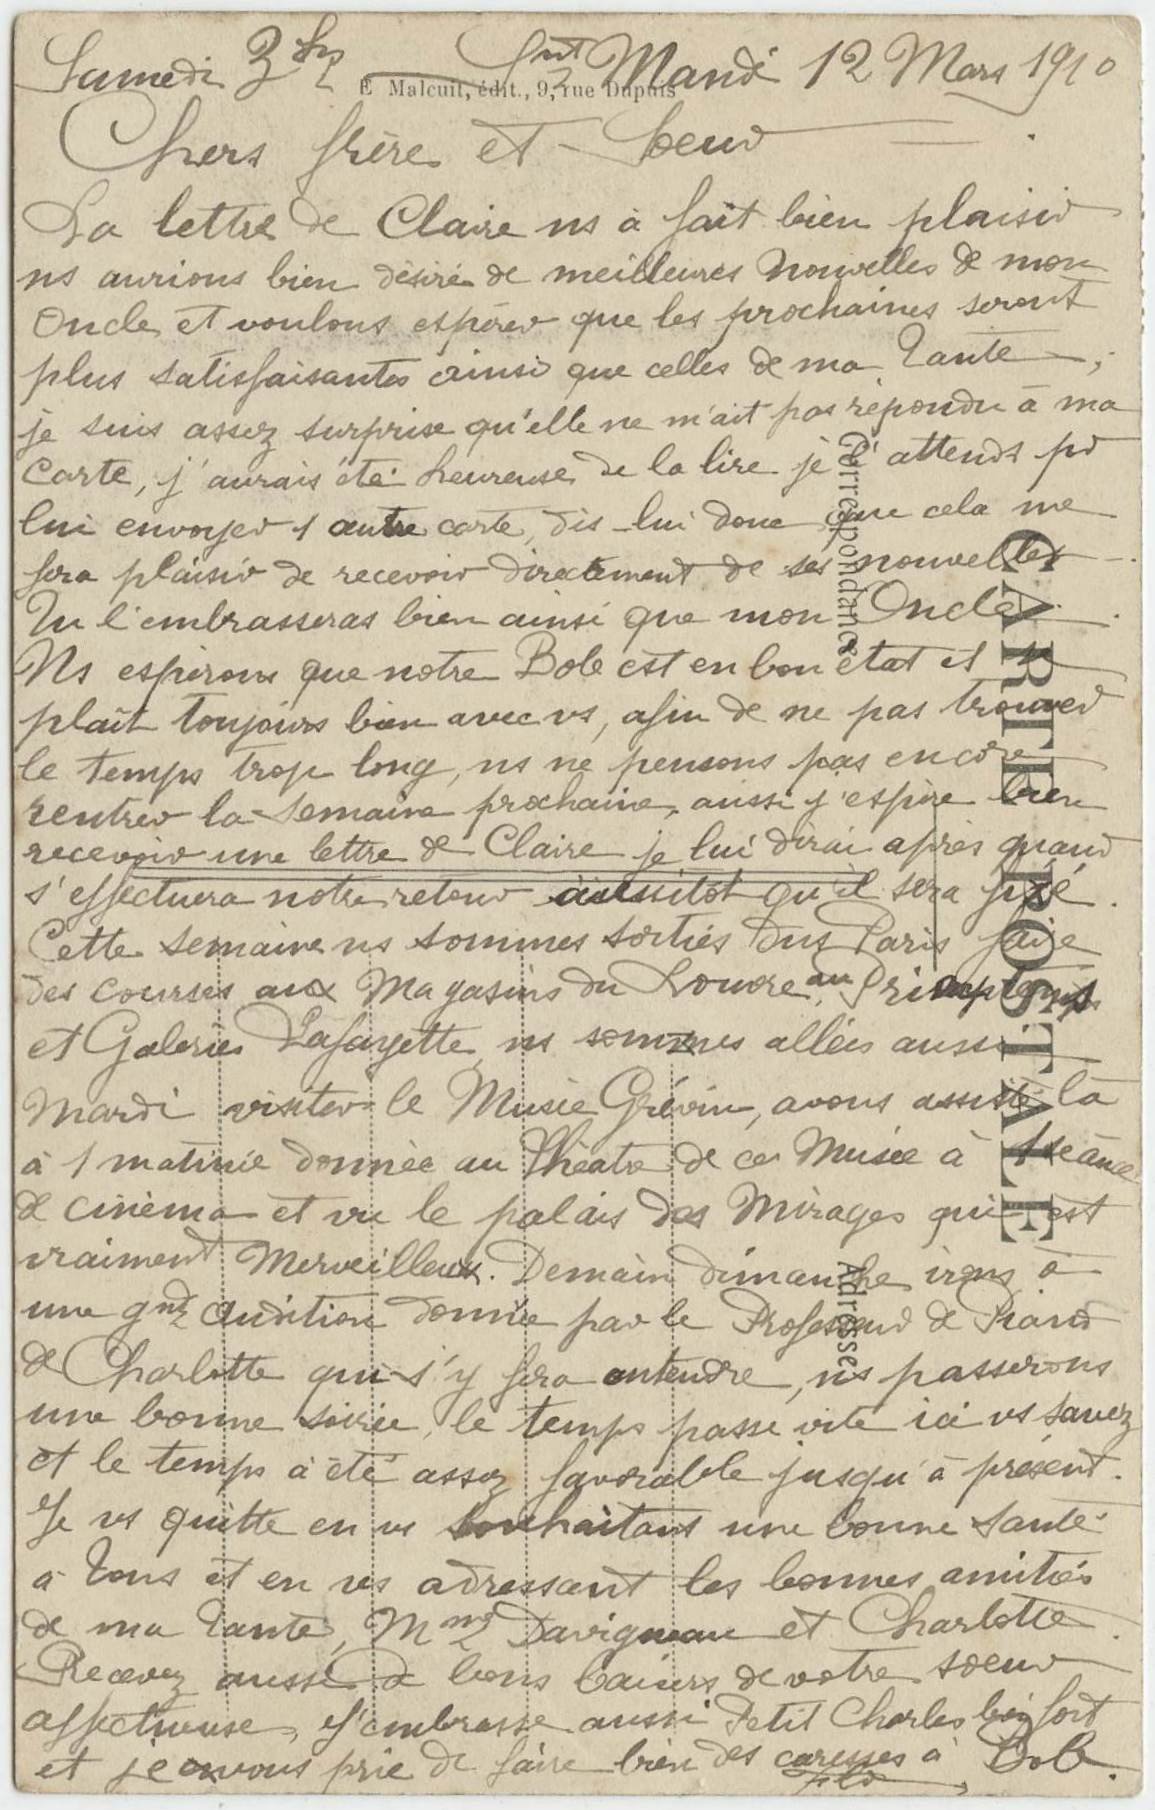 Samedi 3h Snt Mandé 12 Mars 1910
E Malcuit, édit., 9, rue Dupuis
Chers frère et Soeur
La lettre de Claire ns à fait bien plaisir
ns aurions bien désiré de meilleures Nouvelles de mon
Oncle et voulons espérer que les prochaines seront
plus satisfaisantes ainsi que celles de ma Tante,
je suis assez surprise qu'elle ne m'ait pas répondu à ma
Carte, j'aurais été heureuse de la lire je l'attends pr
lui envoyer 1 autre carte, dis-lui donc que cela me
fera plaisir de recevoir directement de ses nouvelles
Tu l'embrasseras bien ainsi que mon Oncle.
Ns espérons que notre Bob est en bon état et se
plaît toujours bien avec vs, afin de ne pas trouver
le temps trop long, ns ne pensons pas encore
rentrer la Semaine prochaine, aussi j'espère bien
recevoir une lettre de Claire je lui dirai après quand
s'effectuera notre retour aussitôt qu'il sera fixé.
Cette semaine ns sommes sorties dns Paris faire
des courses aux Magasins du Louvre, au Printemps
et Galeries Lafayette, ns sommes allées aussi
Mardi visiter le Musée Grévin, avons assisté là
à 1 matinée donnée au Théâtre de ce Musée à 1 séance
de cinéma et vu le palais des Mirages qui est
vraiment Merveilleux. Demain dimanche irons à
une gnde audition donnée par le Professeur de Piano
de Charlotte qui s'y fera entendre, ns passerons
une bonne soirée, le temps passe vite ici vs savez
et le temps à été assez favorable jusqu'à présent.
Je vs quitte en vs souhaitant une bonne Santé
à Tous et en vs adressant les bonnes amitiés
de ma Tante, Mme Davigneau et Charlotte.
Recevez aussi de bons baisers de votre soeur
affectueuse, J'embrasse aussi Petit Charles bien fort
et je vous prie de faire bien des caresses à Bob.
Correspondance
CARTE POSTALE
Adresse